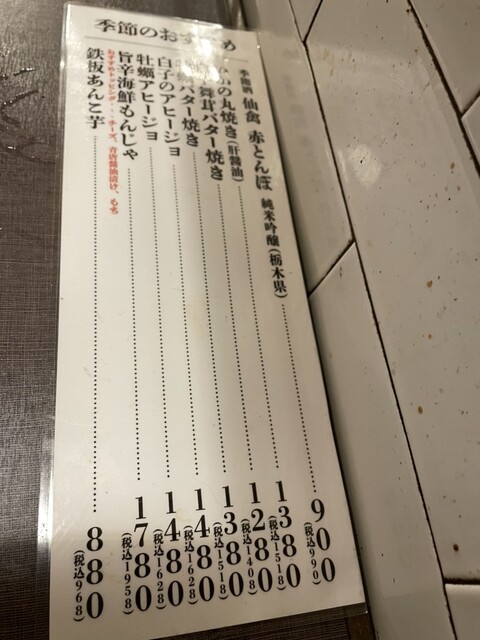 季節のおすすめ
季節酒 仙禽 赤とんぼ 純米吟醸(栃木県) 900(税込990)
の丸焼き(肝醤油) 1380(税込1518)
舞茸バター焼き 1280(税込1408)
バター焼き 1380(税込1518)
白子のアヒージョ 1480(税込1628)
牡蠣アヒージョ 1480(税込1628)
旨辛海鮮もんじゃ 1780(税込1958)
おすすめトッピング・・・チーズ、青唐醤油漬け、もち
鉄板あんこ芋 880(税込968)